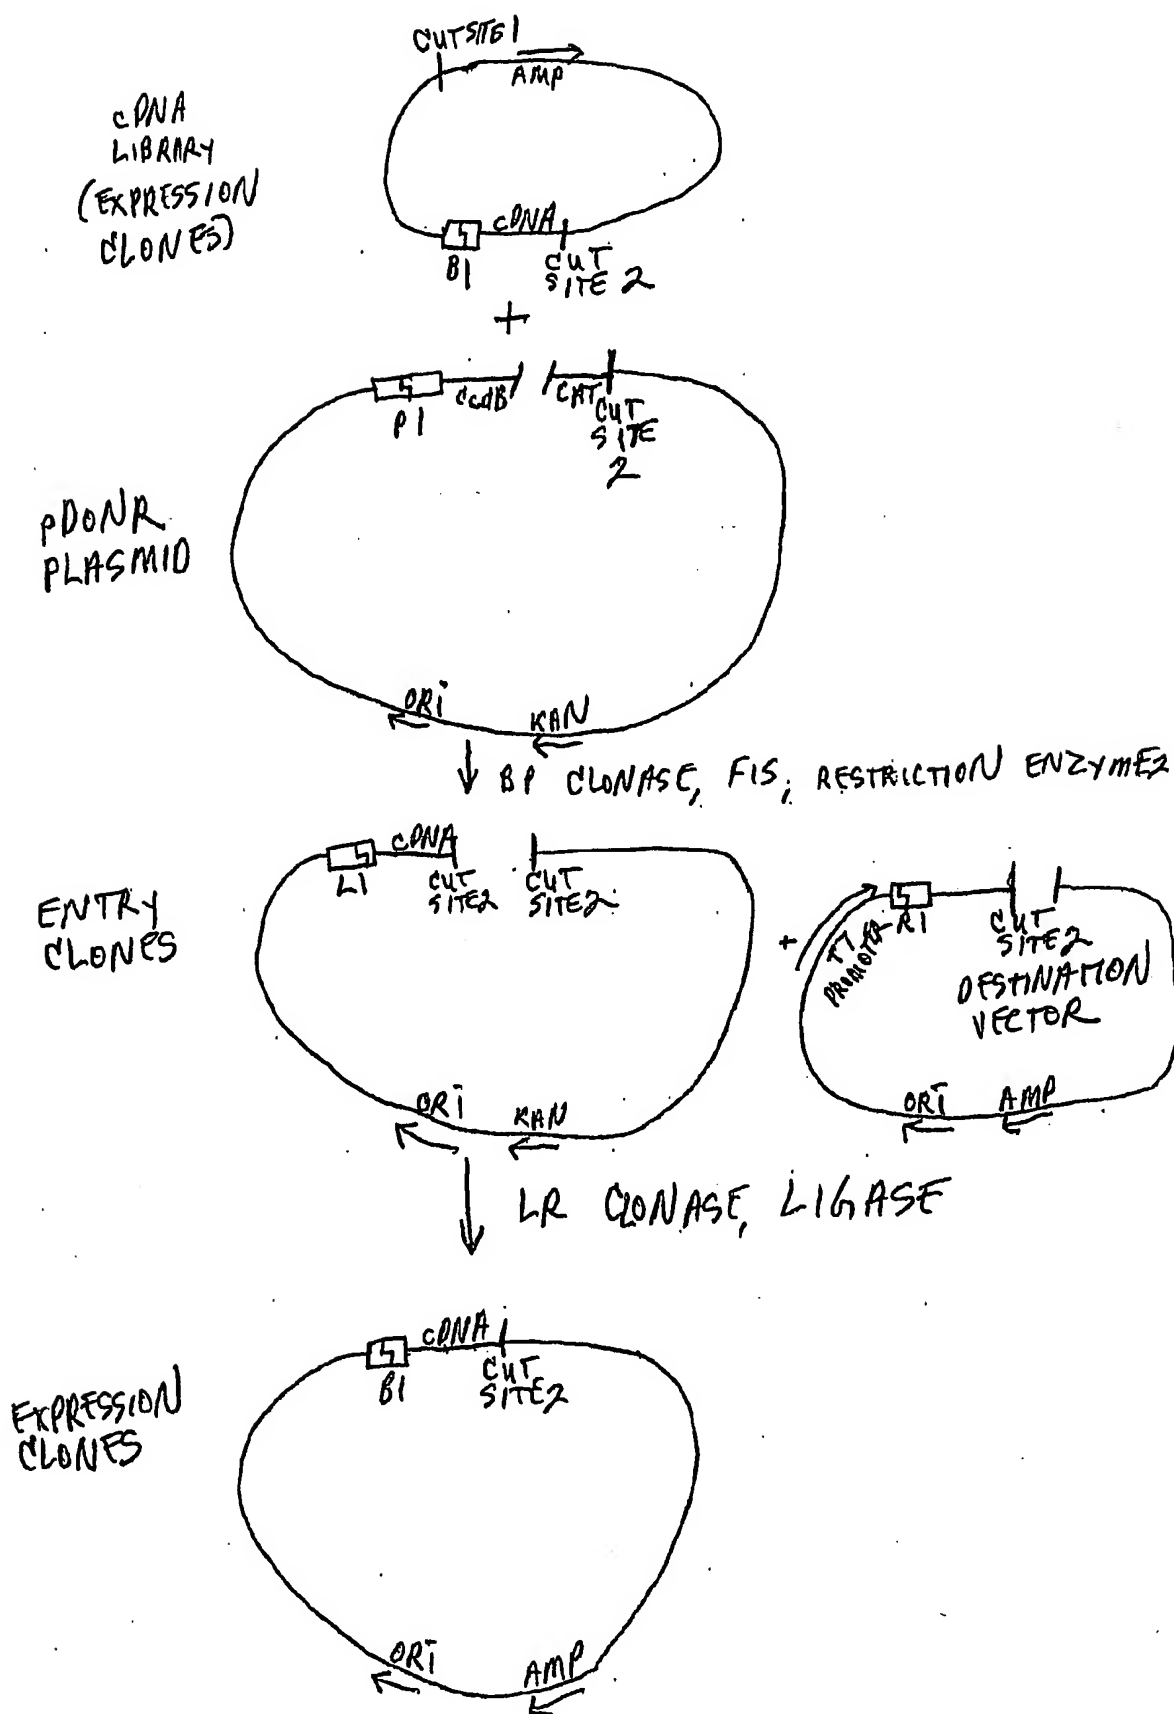 CUT SITE 1
AMP
cDNA
LIBRARY
(EXPRESSION
CLONES)
cDNA
B1
CUT
SITE 2
+
P1
CcdB
CAT
CUT
SITE
2
pDONR
PLASMID
ORI
KAN
BP CLONASE, FIS, RESTRICTION ENZYME2
cDNA
L1
CUT
SITE2
CUT
SITE2
ENTRY
CLONES
ORI
KAN
+
T7
PROMOTER
R1
CUT
SITE2
DESTINATION
VECTOR
ORI
AMP
LR CLONASE, LIGASE
cDNA
B1
CUT
SITE2
EXPRESSION
CLONES
ORI
AMP